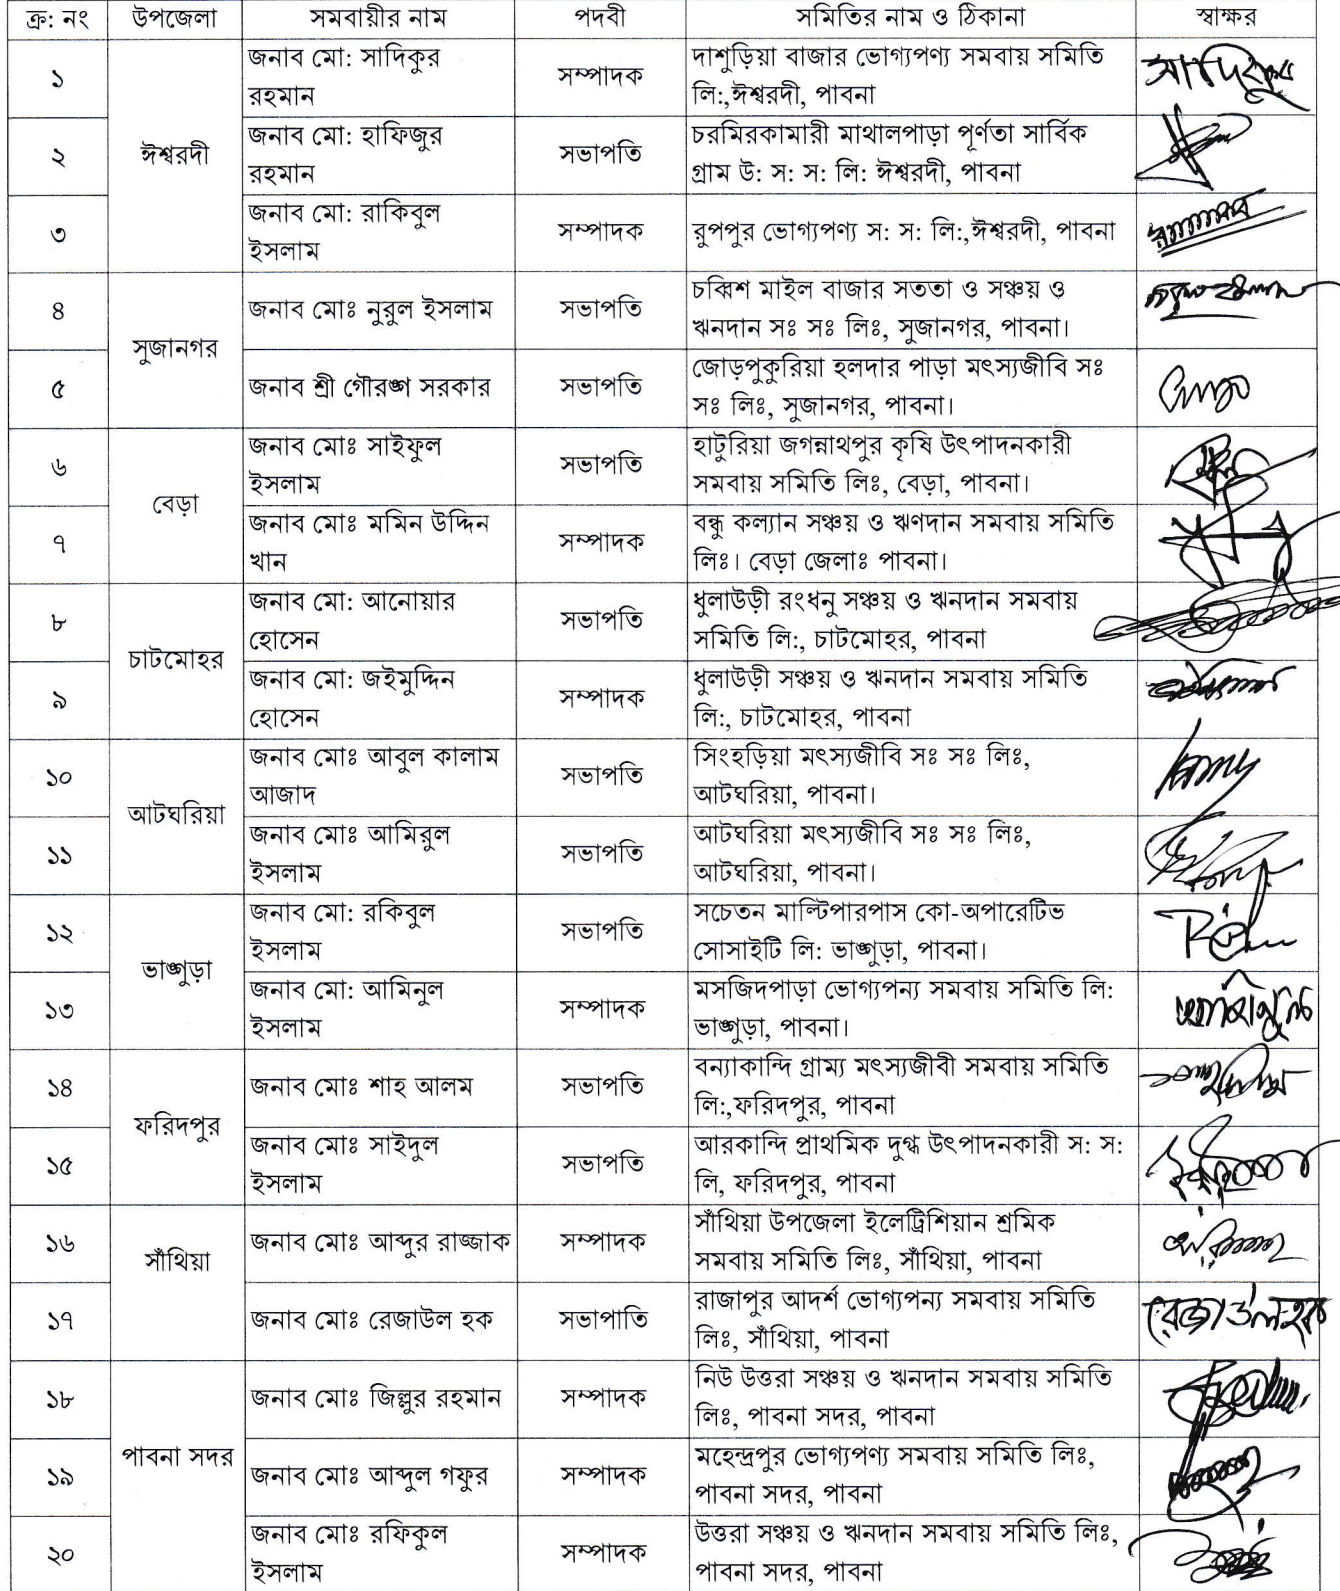 ক্র: নং উপজেলা সমবায়ীর নাম পদবী সমিতির নাম ও ঠিকানা স্বাক্ষর
১ ঈশ্বরদী জনাব মো: সাদিকুর রহমান সম্পাদক দাশুড়িয়া বাজার ভোগ্যপণ্য সমবায় সমিতি লি:,ঈশ্বরদী, পাবনা সাদিকুর
২ জনাব মো: হাফিজুর রহমান সভাপতি চরমিরকামারী মাথালপাড়া পূর্ণতা সার্বিক গ্রাম উ: স: স: লি: ঈশ্বরদী, পাবনা
৩ জনাব মো: রাকিবুল ইসলাম সম্পাদক রুপপুর ভোগ্যপণ্য স: স: লি:,ঈশ্বরদী, পাবনা
৪ সুজানগর জনাব মোঃ নুরুল ইসলাম সভাপতি চব্বিশ মাইল বাজার সততা ও সঞ্চয় ও ঋনদান সঃ সঃ লিঃ, সুজানগর, পাবনা।
৫ জনাব শ্রী গৌরঙ্গ সরকার সভাপতি জোড়পুকুরিয়া হলদার পাড়া মৎস্যজীবি সঃ সঃ লিঃ, সুজানগর, পাবনা।
৬ বেড়া জনাব মোঃ সাইফুল ইসলাম সভাপতি হাটুরিয়া জগন্নাথপুর কৃষি উৎপাদনকারী সমবায় সমিতি লিঃ, বেড়া, পাবনা।
৭ জনাব মোঃ মমিন উদ্দিন খান সম্পাদক বন্ধু কল্যান সঞ্চয় ও ঋণদান সমবায় সমিতি লিঃ। বেড়া জেলাঃ পাবনা।
৮ চাটমোহর জনাব মো: আনোয়ার হোসেন সভাপতি ধুলাউড়ী রংধনু সঞ্চয় ও ঋনদান সমবায় সমিতি লি:, চাটমোহর, পাবনা
৯ জনাব মো: জইমুদ্দিন হোসেন সম্পাদক ধুলাউড়ী সঞ্চয় ও ঋনদান সমবায় সমিতি লি:, চাটমোহর, পাবনা
১০ আটঘরিয়া জনাব মোঃ আবুল কালাম আজাদ সভাপতি সিংহড়িয়া মৎস্যজীবি সঃ সঃ লিঃ, আটঘরিয়া, পাবনা।
১১ জনাব মোঃ আমিরুল ইসলাম সভাপতি আটঘরিয়া মৎস্যজীবি সঃ সঃ লিঃ, আটঘরিয়া, পাবনা।
১২ ভাঙ্গুড়া জনাব মো: রকিবুল ইসলাম সভাপতি সচেতন মাল্টিপারপাস কো-অপারেটিভ সোসাইটি লি: ভাঙ্গুড়া, পাবনা।
১৩ জনাব মো: আমিনুল ইসলাম সম্পাদক মসজিদপাড়া ভোগ্যপন্য সমবায় সমিতি লি: ভাঙ্গুড়া, পাবনা। আমিনুল
১৪ ফরিদপুর জনাব মোঃ শাহ আলম সভাপতি বন্যাকান্দি গ্রাম্য মৎস্যজীবী সমবায় সমিতি লি:,ফরিদপুর, পাবনা
১৫ জনাব মোঃ সাইদুল ইসলাম সভাপতি আরকান্দি প্রাথমিক দুগ্ধ উৎপাদনকারী স: স: লি, ফরিদপুর, পাবনা
১৬ সাঁথিয়া জনাব মোঃ আব্দুর রাজ্জাক সম্পাদক সাঁথিয়া উপজেলা ইলেট্রিশিয়ান শ্রমিক সমবায় সমিতি লিঃ, সাঁথিয়া, পাবনা
১৭ জনাব মোঃ রেজাউল হক সভাপাতি রাজাপুর আদর্শ ভোগ্যপন্য সমবায় সমিতি লিঃ, সাঁথিয়া, পাবনা রেজাউল হক
১৮ পাবনা সদর জনাব মোঃ জিল্লুর রহমান সম্পাদক নিউ উত্তরা সঞ্চয় ও ঋনদান সমবায় সমিতি লিঃ, পাবনা সদর, পাবনা
১৯ জনাব মোঃ আব্দুল গফুর সম্পাদক মহেন্দ্রপুর ভোগ্যপণ্য সমবায় সমিতি লিঃ, পাবনা সদর, পাবনা
২০ জনাব মোঃ রফিকুল ইসলাম সম্পাদক উত্তরা সঞ্চয় ও ঋনদান সমবায় সমিতি লিঃ, পাবনা সদর, পাবনা